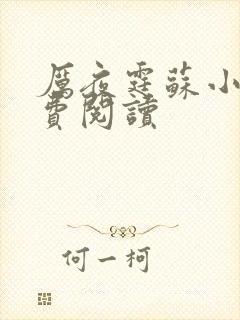 厲夜霆蘇小
費閱讀
何一柯